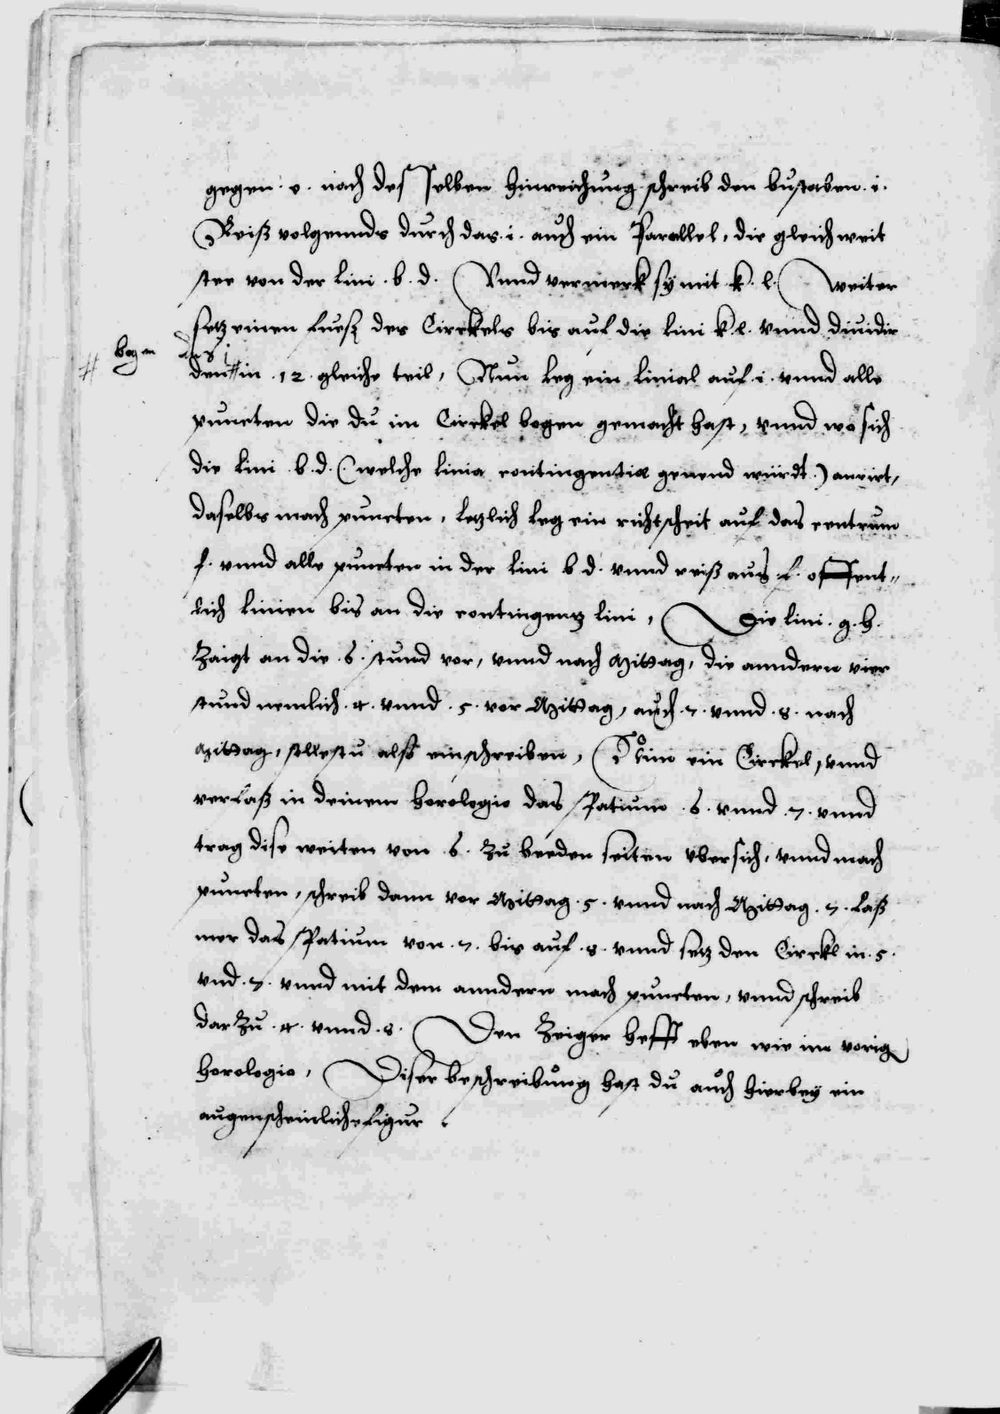 gegen .e. nach des selben hinreichung schreib den bustaben .i.
Reiß volgennds durch das .i. auch ein Parallel, die gleich weit
stee von der lini .b.d. Vnnd vermerk sy mit .k.l. Weiter
setz einen fuesz des Circkels bis auf die lini k.l. vnnd diuidir
# bogen
den # in .12. gleiche teil, Nun leg ein linial auf .i. vnnd alle
puncten die du im Circkel bogen gemacht hast, vnnd wo sich
die lini .b.d. (welche linia contingentiae genend würdt.) anrirt,
daselbs mach puncten, letzlich leg ein richtscheit auf das centrum
f. vnnd alle puncten in der lini b.d. vnnd reiß aus .f. offent-
lich linien bis an die contingentz lini, Die lini .g.h.
Zaigt an die .6. stund vor, vnnd nach Mittag, die anndern vier
stund nemlich .4. vnnd .5. vor Mittag, auch .7. vnnd .8. nach
Mittag, sollestu also einschreiben, Nim ein Circkel, vnnd
verfaß in deinem horologio das Spatium .6. vnnd .7. vnnd
trag dise weiten von .6. Zu beeden seiten vbersich, vnnd mach
puncten, schreib dann vor Mittag .5. vnnd nach Mittag .7. faß
mer das Spatium von .7. bis auf .8. vnnd setz den Circkl in .5.
vnd .7. vnnd mit dem anndern mach puncten, vnnd schreib
dar Zu .4. vnnd .8. Den Zeiger hefft eben wie im vorig
horologio, Diser beschreibung hast du auch hierbey ein
augenscheinliche figur